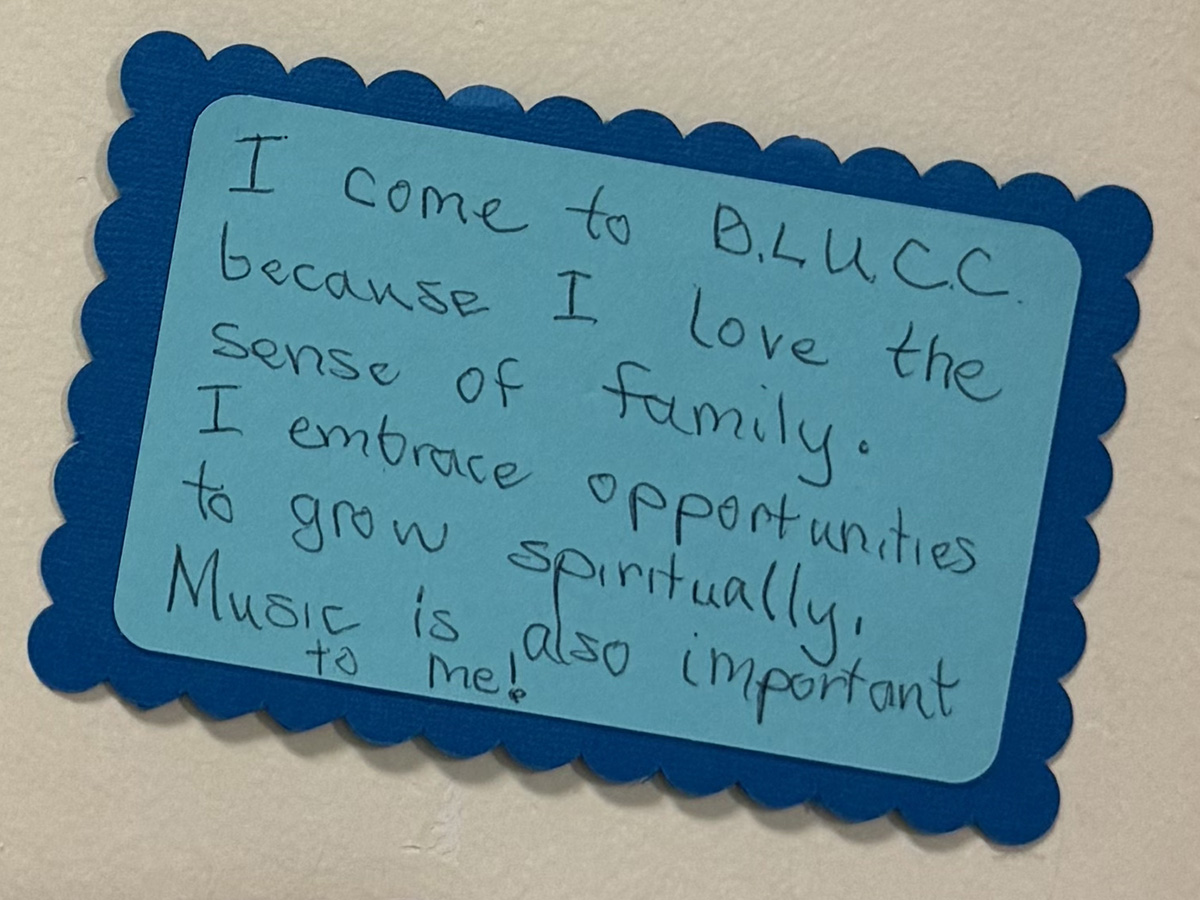 I come to B.L.U.C.C.
because I love the
sense of family.
I embrace opportunities
to grow spiritually.
Music is also important
to me!